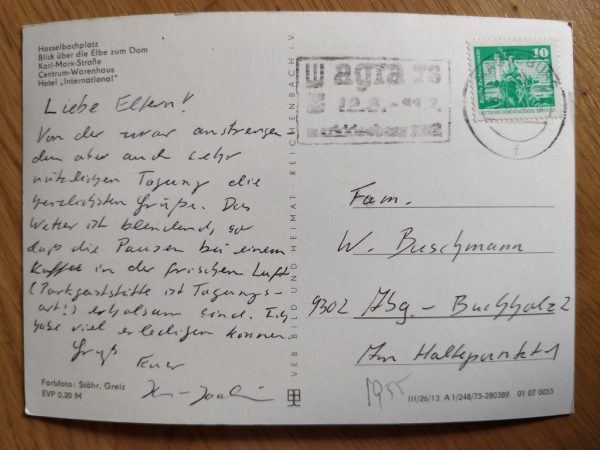 Hasselbachplatz
Blick über die Elbe zum Dom
Karl-Marx-Straße
Centrum-Warenhaus
Hotel „International"
Liebe Eltern!
Von der zwar anstrengen-
den aber auch sehr
nützlichen Tagung die
herzlichsten Grüße. Das
Wetter ist blendend, so
daß die Pausen bei einem
Kaffee in der frischen Luft
(Parkgaststätte ist Tagungs-
ort!) erholsam sind. Ich
habe viel erledigen können.
Gruß
Euer
Farbfoto: Stöhr, Greiz
EVP 0,20 M
VEB BILD UND HEIMAT · REICHENBACH i. V.
agra
10
Fam.
W. Buschmann
9302 Abg.-Buchholz 2
Am Haltepunkt 1
1955
III/26/13 A 1/248/75-280389 01 07 0055